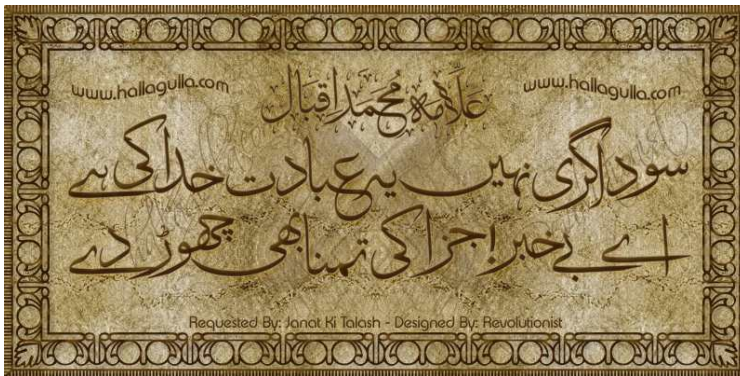 www.hallagulla.com www.hallagulla.com
علامہ محمد اقبال
سوداگری نہیں یہ عبادت خدا کی ہے
اے بے خبر! جزا کی تمنا بھی چھوڑ دے
Requested By: Janat Ki Talash - Designed By: Revolutionist